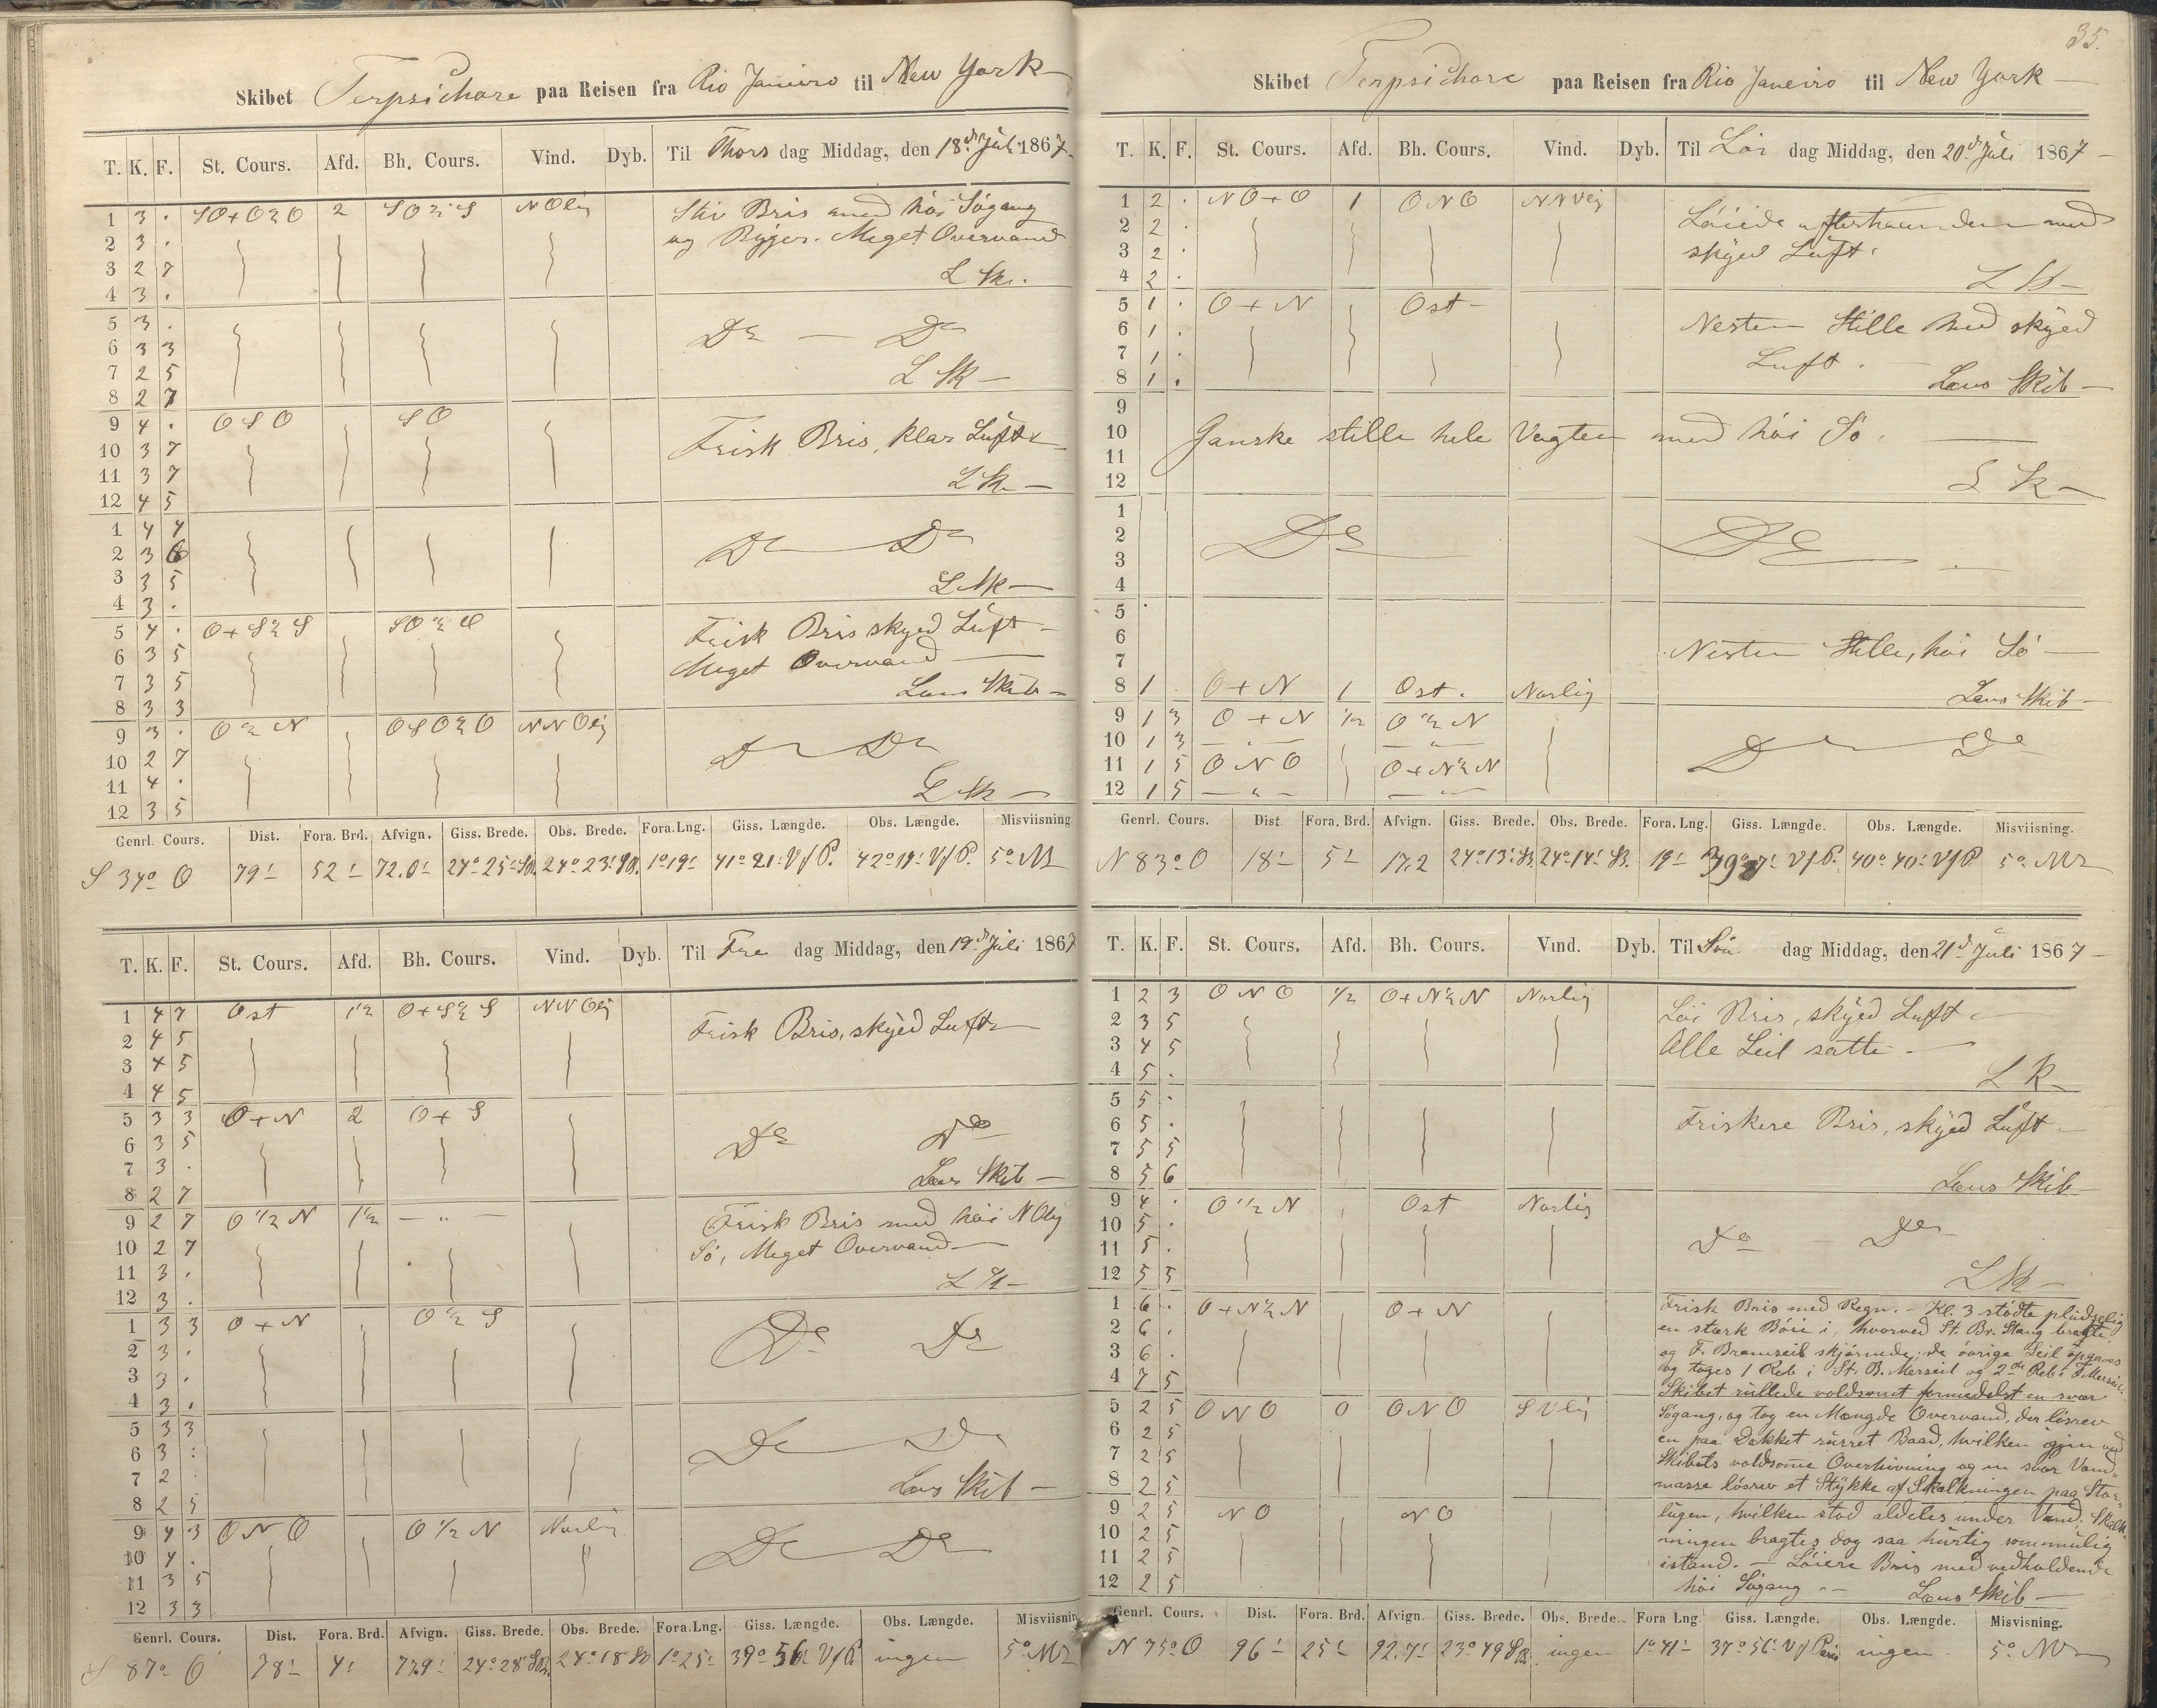 Skibet Terpsichore paa Reisen fra Rio Janeiro til New York
T. K. F. St. Cours. Afd. Bh. Cours. Vind. Dyb. Til Thors dag Middag, den 18de Juli 1867.
1 3 . SO+O½O 2 SO½S NOlig Stiv Bris med høi Søgang
2 3 . og Byger. Meget Overvand
3 2 7 L Sk.
4 3 .
5 3 .
6 3 3 Do — Do
7 2 5 L Sk —
8 2 7
9 4 . OSO SO
10 3 7 Frisk Bris, klar Luft
11 3 7 L Sk —
12 4 5
1 4 4
2 3 6 Do Do
3 3 5 L Sk —
4 3 .
5 4 . O+S½S SO½O Frisk Bris skyed Luft —
6 3 5 Meget Overvand —
7 3 5 Lens Skib —
8 3 3
9 3 . O½N OSO½O NNOlig
10 2 7 Do Do
11 4 . L Sk —
12 3 5
Genrl. Cours. Dist. Fora. Brd. Afvign. Giss. Brede. Obs. Brede. Fora. Lng. Giss. Længde. Obs. Længde. Misviisning
S 34° O 79' 52' 72.0' 24° 25' SB. 24° 23' SB. 1° 19' 41° 21' V f P. 42° 19' V f P. 5° M
T. K. F. St. Cours. Afd. Bh. Cours. Vind. Dyb. Til Fre dag Middag, den 19de Juli 1867
1 4 7 Ost 1½ O+S½S NNOlig Frisk Bris, skyed Luft
2 4 5
3 4 5
4 4 5
5 3 3 O+N 2 O+S
6 3 5 Do Do
7 3 . Lens Skib —
8 2 7
9 2 7 O½N 1½ — " — Frisk Bris med høi NOlig
10 2 7 Sø, Meget Overvand —
11 3 . L Sk —
12 3 .
1 3 3 O+N O½S Do Do
2 3 .
3 3 .
4 3 .
5 3 3
6 3 : Do Do
7 2 . Lens Skib —
8 2 5
9 4 3 ONO O½N Norlig
10 4 . Do Do
11 3 5
12 3 3
Genrl. Cours. Dist. Fora. Brd. Afvign. Giss. Brede. Obs. Brede. Fora. Lng. Giss. Længde. Obs. Længde. Misviisning
S 87° O 78' 4' 77.9' 24° 28' SB. 24° 18' SB 1° 25' 39° 56' V f P. ingen 5° M
35.
Skibet Terpsichore paa Reisen fra Rio Janeiro til New York —
T. K. F. St. Cours. Afd. Bh. Cours. Vind. Dyb. Til Lør dag Middag, den 20de Juli 1867 —
1 2 . NO+O 1 ONO NNVlig Løiede efterhaanden med
2 2 . skyed Luft.
3 2 .
4 2 . L Sk —
5 1 . O+N Ost —
6 1 . Nesten Stille med skyed
7 1 . Luft.
8 1 . Lens Skib —
9
10 Ganske stille hele Vagten med høi Sø.
11
12 L Sk —
1
2 Do Do
3
4
5
6 Nesten Stille, høi Sø —
7
8 1 . O+N 1 Ost. Norlig Lens Skib —
9 1 3 O+N ½ O½N
10 1 3 — " — — " — Do Do
11 1 5 ONO O+N½N
12 1 5 — " — — " —
Genrl. Cours. Dist. Fora. Brd. Afvign. Giss. Brede. Obs. Brede. Fora. Lng. Giss. Længde. Obs. Længde. Misviisning.
N 83° O 18' 5' 17.2 24° 13' SB. 24° 14' SB. 19' 39° 7' V f P. 40° 40' V f P 5° M
T. K. F. St. Cours. Afd. Bh. Cours. Vind. Dyb. Til Søn dag Middag, den 21de Juli 1867 —
1 2 3 ONO ½ O+N½N Norlig Løi Bris, skyed Luft
2 3 5 Alle Seil satte. —
3 4 5
4 5 . L Sk
5 5 .
6 5 . Friskere Bris, skyed Luft —
7 5 5
8 5 6 Lens Skib —
9 4 . O½N Ost Norlig
10 5 . Do — Do
11 5 .
12 5 5 L Sk —
1 6 . O+N½N O+N Frisk Bris med Regn. — Kl. 3 stødte pludselig
2 6 . en stærk Bøie i, hvorved St. Br. Stang bragte,
3 6 . og F. Bramseil skjørnede; de øvrige Seil opgaves
4 7 5 og toges 1 Reb i St. B. Merseil og 2de Reb i F. Merseil.
Skibet rullede voldsomt formedelst en svær
5 2 5 ONO O ONO SVlig Søgang, og tog en Mængde Overvand, der løsrev
6 2 5 en paa Dækket surret Baad, hvilken gjen ved
7 2 5 Skibets voldsomme Overhivning og en svær Vand-
8 2 5 masse løsrev et Stykke af Skalkningen paa Stor-
9 2 5 NO NO lugen, hvilken stod aldeles under Vand; Skalk-
10 2 5 ningen bragtes dog saa hurtig som mulig
11 2 5 istand. — Løiere Bris med vedholdende
12 2 5 høi Søgang — Lens Skib —
Genrl. Cours. Dist. Fora. Brd. Afvign. Giss. Brede. Obs. Brede. Fora Lng. Giss. Længde. Obs. Længde. Misvisning.
N 75° O 96' 25' 92.7' 23° 49 SB. ingen 1° 41' 37° 56' V f Paris ingen 5° M